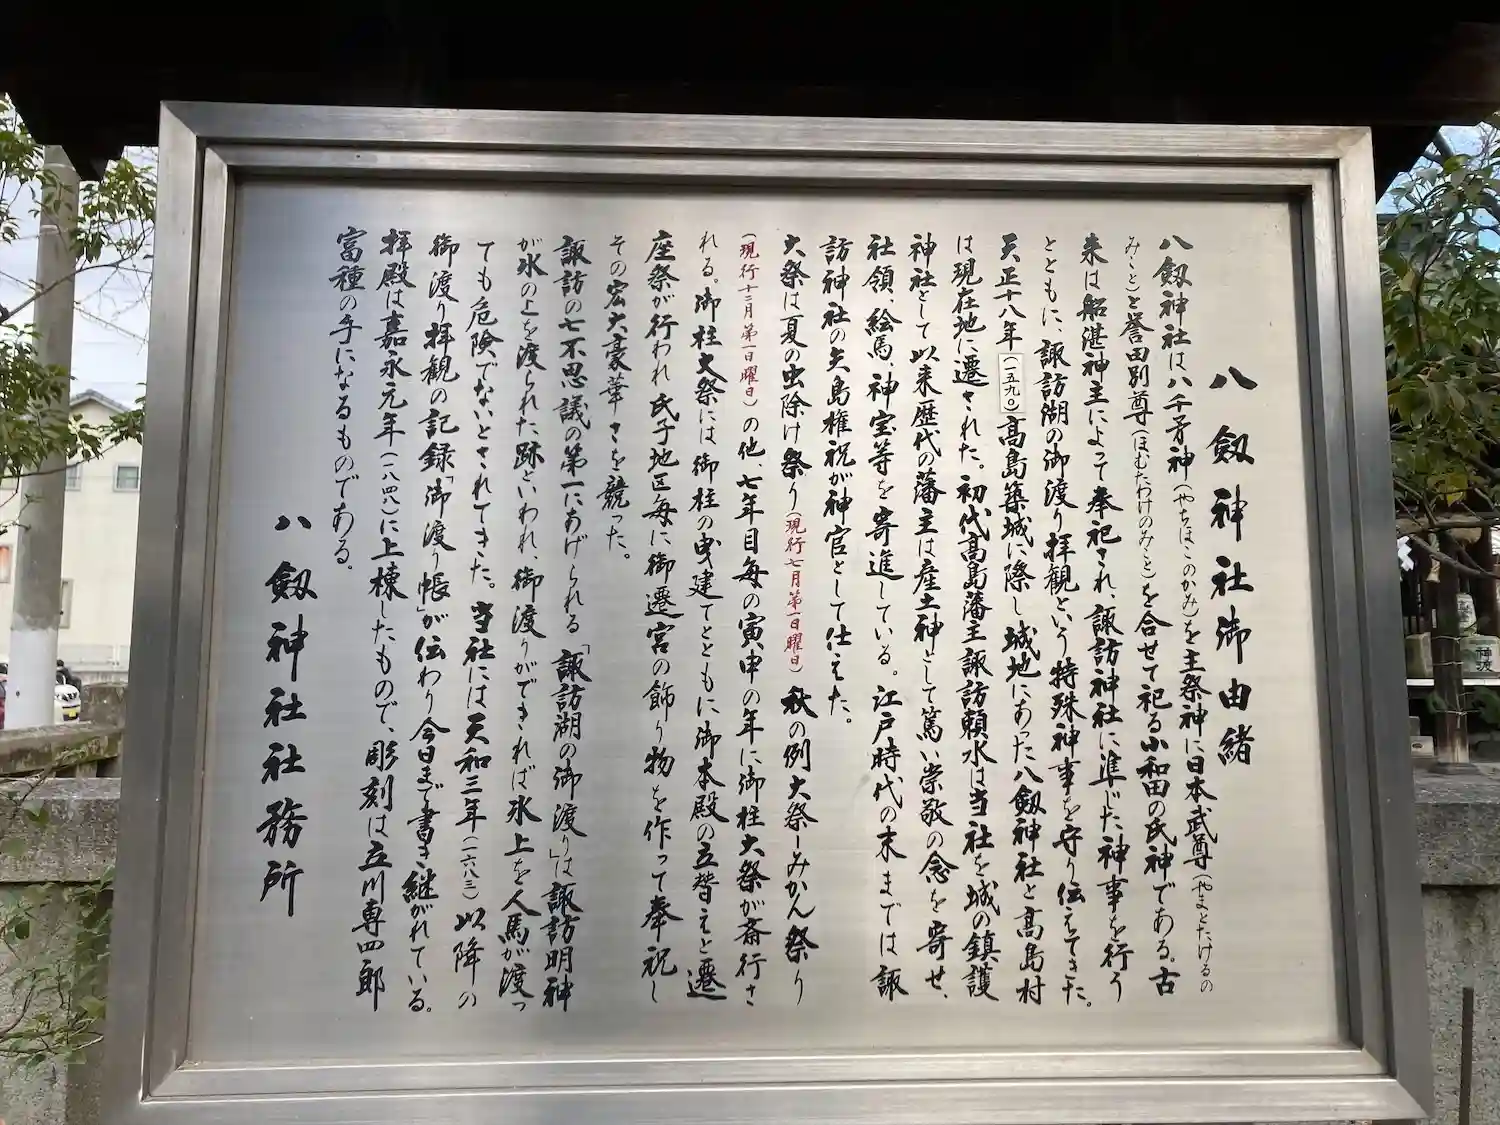 八劔神社御由緒
八劔神社は八千矛神（やちほこのかみ）を主祭神に日本武尊（やまとたけるの
みこと）と誉田別尊（ほむたわけのみこと）を合せて祀る小和田の氏神である。古
来は船湛神主によって奉祀され、諏訪神社に準じた神事を行う
とともに、諏訪湖の御渡り拝観という特殊神事を守り伝えてきた。
天正十八年（一五九〇）高島築城に際し城地にあった八劔神社と高島村
は現在地に遷された。初代高島藩主諏訪頼水は当社を城の鎮護
神社として以来歴代の藩主は産土神として篤い崇敬の念を寄せ、
社領、絵馬、神宝等を寄進している。江戸時代の末までは諏
訪神社の矢島権祝が神官として仕えた。
大祭は夏の虫除け祭り（現行七月第一日曜日）秋の例大祭－みかん祭り
（現行十二月第一日曜日）の他、七年目毎の寅申の年に御柱大祭が斎行さ
れる。御柱大祭には御柱の曳建てとともに御本殿の立替えと遷
座祭が行われ氏子地区毎に御遷宮の飾り物を作って奉祝し
その宏大豪華さを競った。
諏訪の七不思議の第一にあげられる「諏訪湖の御渡り」は諏訪明神
が氷の上を渡られた跡といわれ、御渡りができれば氷上を人馬が渡っ
ても危険でないとされてきた。当社には天和三年（一六八三）以降の
御渡り拝観の記録「御渡り帳」が伝わり今日まで書き継がれている。
拝殿は嘉永元年（一八四八）に上棟したもので、彫刻は立川専四郎
富種の手になるものである。
八劔神社社務所